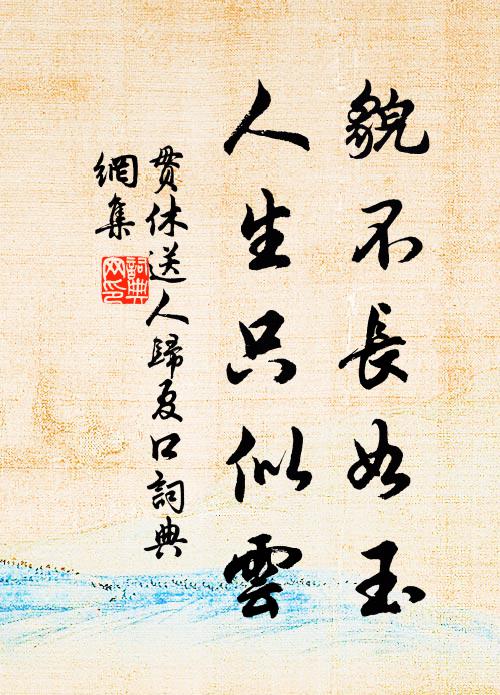 貌不長如玉
人生只似雲
貫休送人歸夏口詞典
網集
詞典網印